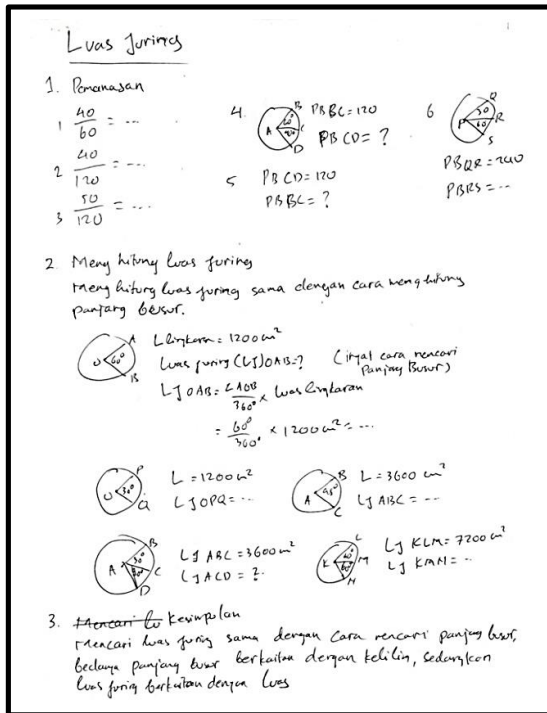 Luas Juring
1. Pemanasan
1 40/60 = ...
2 40/120 = ...
3 50/120 = ...
4. A B C D 60° PBBC = 120
PBCD = ?
5 PBCD = 120
PBBC = ?
6 P Q R S 50 60
PBQR = 240
PBRS = ...
2. Menghitung luas juring
Menghitung luas juring sama dengan cara menghitung
panjang busur.
O A B 60° L lingkaran = 1200 cm²
Luas juring (LJ) OAB = ? (ingat cara mencari
panjang busur)
LJ OAB = ∠AOB/360° × Luas lingkaran
= 60°/360° × 1200 cm² = ...
O P Q 30° L = 1200 cm²
LJ OPQ = ...
A B C L = 3600 cm²
LJ ABC = ...
A B C D LJ ABC = 3600 cm²
LJ ACD = ?
K L M N 60° LJ KLM = 7200 cm²
LJ KMN = ..
3. Mencari lu Kesimpulan
Mencari luas juring sama dengan cara mencari panjang busur,
bedanya panjang busur berkaitan dengan kelilin, sedangkan
luas juring berkaitan dengan luas